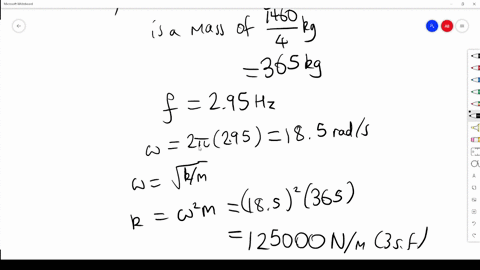 Microsoft Whiteboard
is a mass of 1460/4 kg
= 365 kg
f = 2.95 Hz
ω = 2π(295) = 18.5 rad/s
ω = √k/m
k = ω²m = (18.5)²(365)
= 125000 N/m (3s.f)